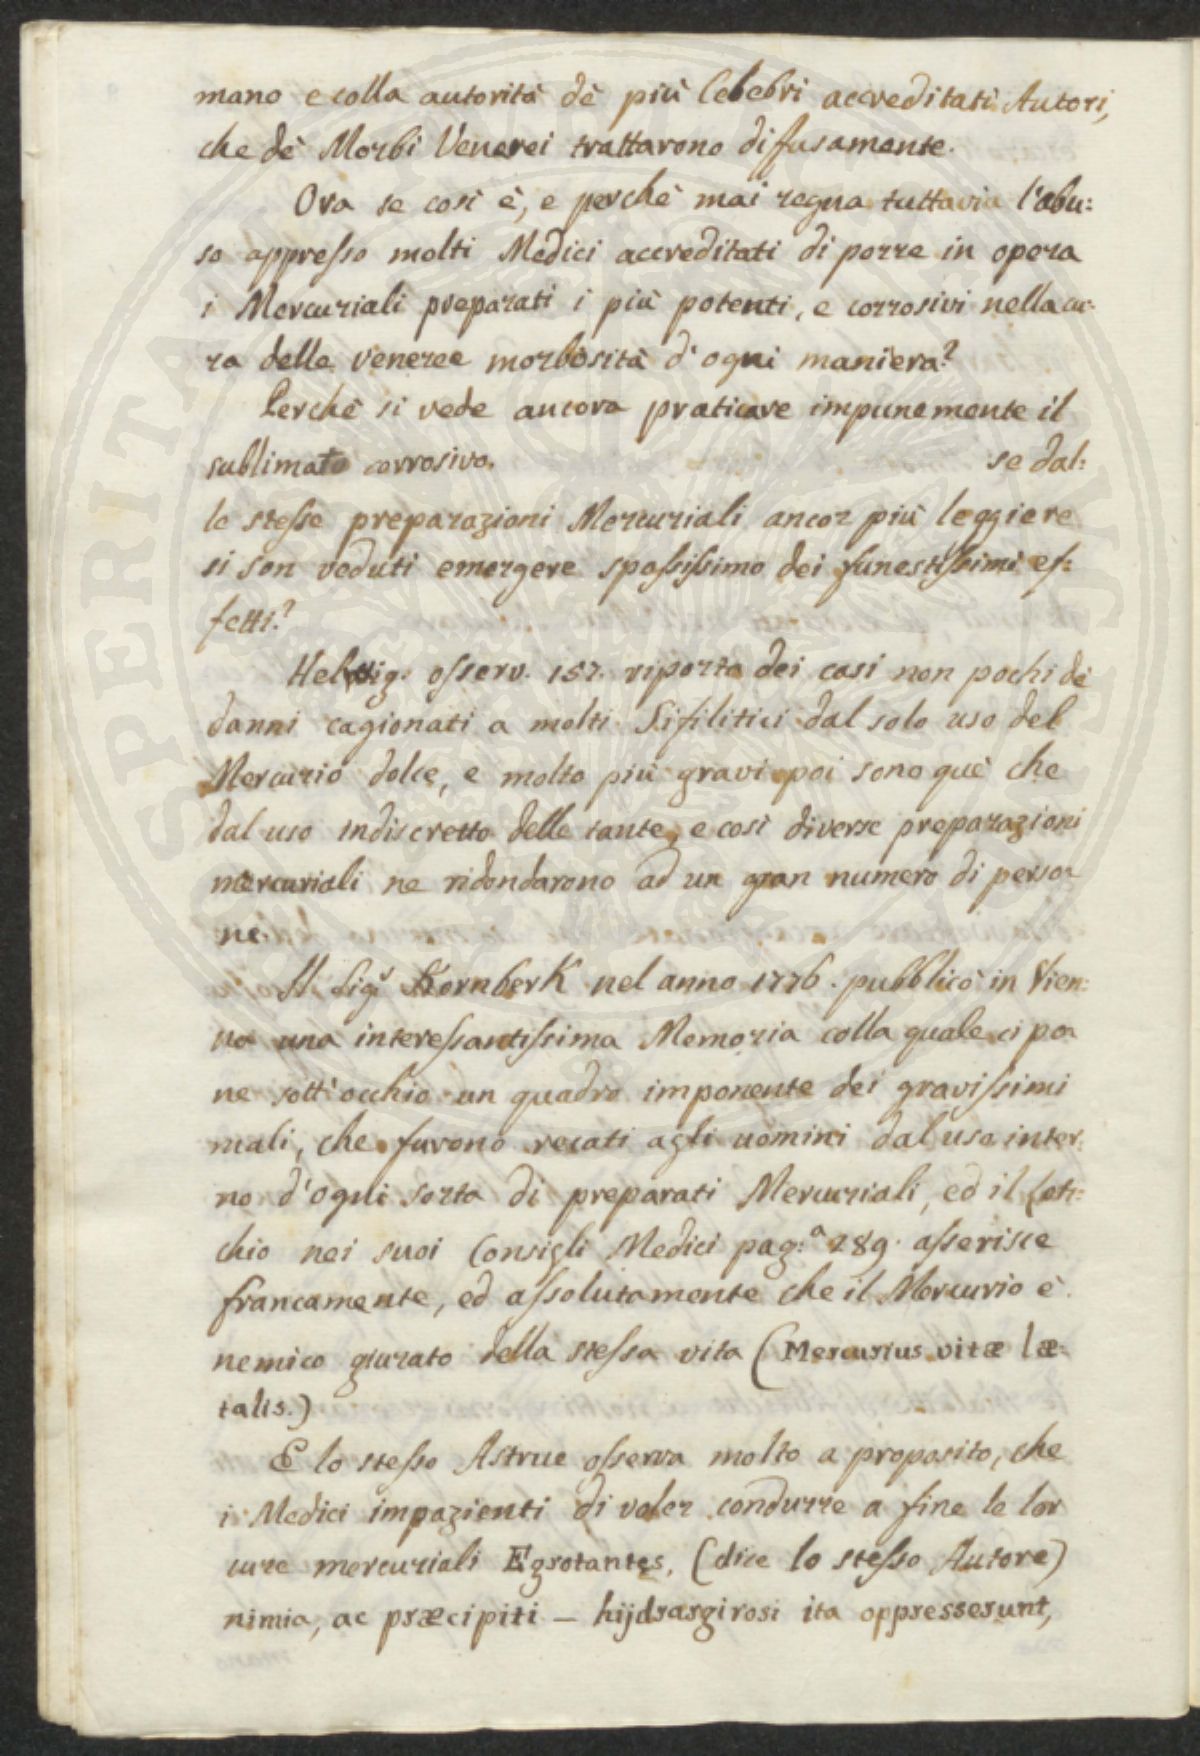 mano e colla autorità dè più Celebri accreditati Autori,
che dè Morbi Venerei trattarono difusamente.
Ora se così è, e perchè mai regna tuttavia l'abu:
so appresso molti Medici accreditati di porre in opera
i Mercuriali preparati i più potenti, e corrosivi nella cu:
ra delle veneree morbosità d'ogni maniera?
Perchè si vede ancora praticare impunemente il
sublimato corrosivo. se dal:
le stesse preparazioni Mercuriali ancor più leggiere
si son veduti emergere spessissimo dei funestissimi ef:
fetti?
Helwig. osserv. 157. riporta dei casi non pochi dè
danni cagionati a molti Sifilitici dal solo uso del
Mercurio dolce, e molto più gravi poi sono què che
dal uso indiscretto delle tante, e così diverse preparazioni
mercuriali ne ridondarono ad un gran numero di perso:
ne.
Il Sigr KornberK nel anno 1776. pubblicò in Vien:
na una interessantissima Memoria colla quale ci po:
ne sott'occhio un quadro imponente dei gravissimi
mali, che furono recati agli uomini dal uso inter:
no d'ogni sorta di preparati Mercuriali, ed il
chio nei suoi Consigli Medici pag:a 289. asserisce
francamente, ed assolutamente che il Mercurio è
nemico giurato della stessa vita (Mercurius vitæ læ:
talis.)
E lo stesso Astruc osserva molto a proposito, che
i Medici impazienti di voler condurre a fine le lor
cure mercuriali Egrotantes, (dice lo stesso Autore)
nimia, ac præcipiti – hijdrargirosi ita oppresserunt,
SOSPERITATI PUBLICÆ AUGENDÆ